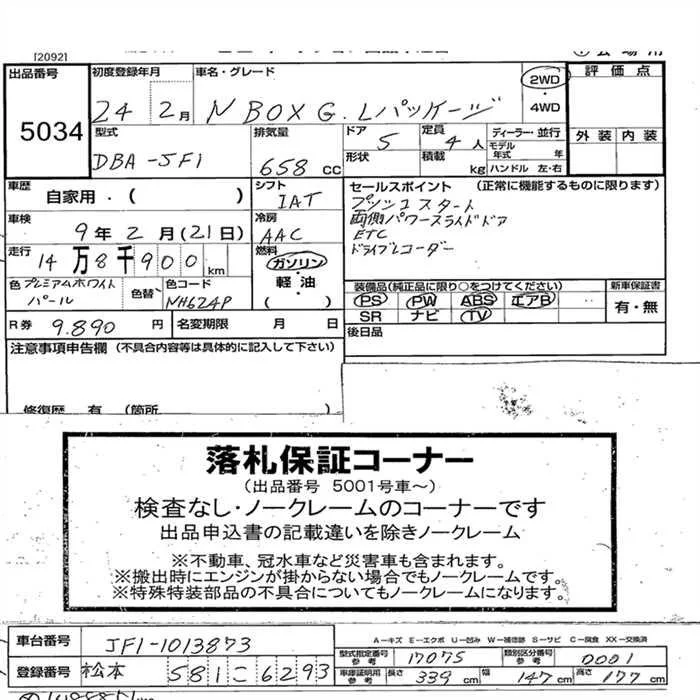 [2092]
出品番号 5034
初度登録年月 24 2月
車名・グレード N BOX G. Lパッケージ
2WD・4WD
評価点
外装 内装
型式 DBA-JF1
排気量 658 cc
ドア 5
形状
定員 4人
積載 kg
ディーラー・並行
モデル年式 年
ハンドル 左・右
車歴 自家用・( )
シフト IAT
セールスポイント (正常に機能するものに限ります)
プッシュスタート
両側パワースライドドア
ETC
ドライブレコーダー
車検 9年2月(21日)
冷房 AAC
走行 14万8千900km
燃料 ガソリン・軽油・( )
色 プレミアムホワイトパール
色替
色コード NH624P
装備品(純正品に限り○をつけてください)
PS PW ABS エアB
SR ナビ TV
新車保証書 有・無
R券 9.890円
名変期限 月 日
後日品
注意事項申告欄 (不具合内容等は具体的に記入して下さい)
修復歴 有 (箇所
落札保証コーナー
(出品番号 5001号車~)
検査なし・ノークレームのコーナーです
出品申込書の記載違いを除きノークレーム
※不動車、冠水車など災害車も含まれます。
※搬出時にエンジンが掛からない場合でもノークレームです。
※特殊特装部品の不具合についてもノークレームになります。
A−キズ E−エクボ U−凹み W−補修跡 S−サビ C−腐食 XX−交換済
車台番号 JF1-1013873
型式指定番号参考 17075
類別区分番号参考 0001
登録番号 松本 581こ6293
車庫証明用参考 長さ 339cm 幅 147cm 高さ 177cm